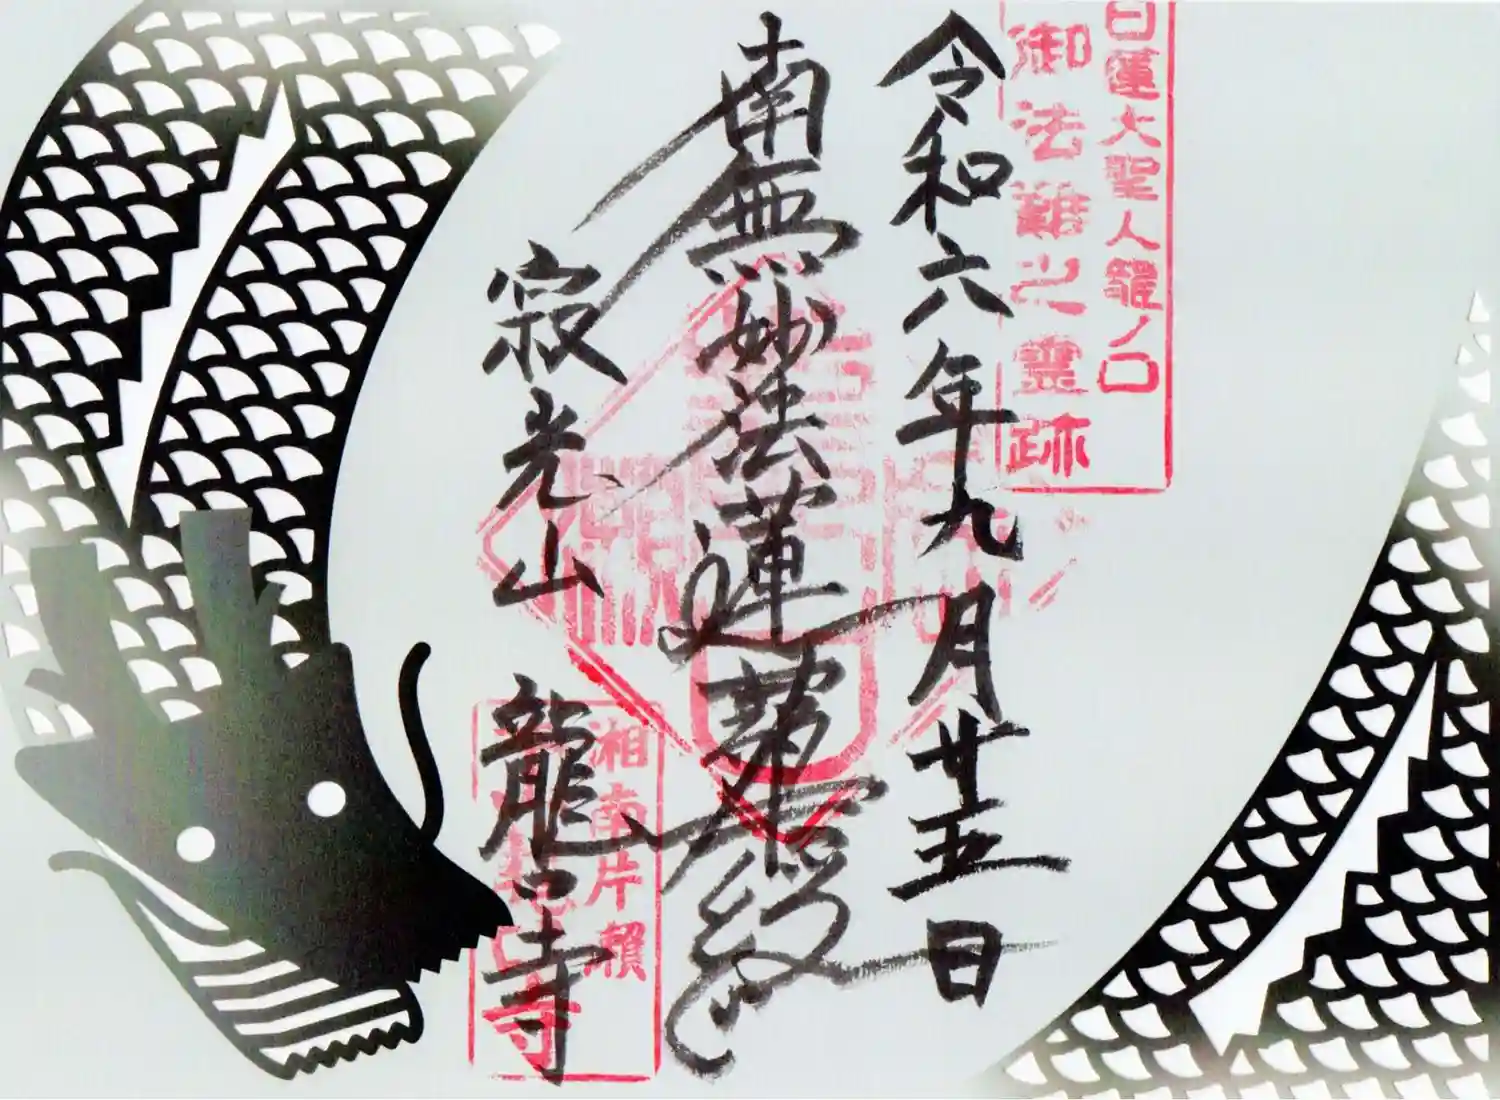 日蓮大聖人龍ノ口
御法難之霊跡
令和六年九月廿五日
南無妙法蓮華経
寂光山 龍口寺
湘南片瀬